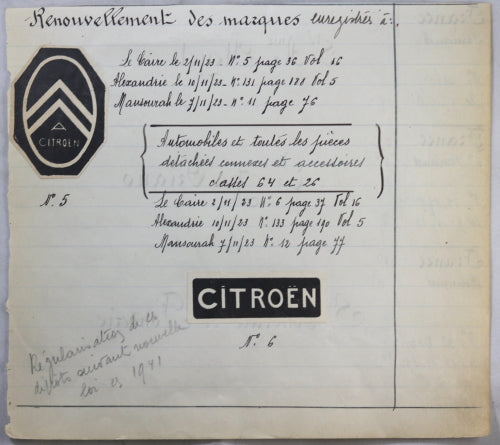 Renouvellement des marques enregistrés à:
Le Caire le 2/11/23 N° 5 page 36 Vol 16
Alexandrie le 10/11/23 - N° 131 page 188 Vol 5
Mansourah le 7/11/23 - N° 11 page 76
CITROËN
N° 5
Automobiles et toutes les pièces
detachées connexes et accessoires
classes 64 et 26
Le Caire 2/11/23 N° 6 page 37 Vol 16
Alexandrie 10/11/23 N° 133 page 190 Vol 5
Mansourah 7/11/23 N° 12 page 77
CITROËN
N° 6
Régularisation des
dépôts suivant nouvelle
loi 1941